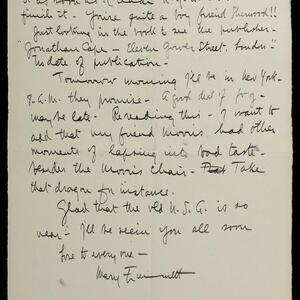 finish it. You're quite a boy friend Sherwood!!
Just looking in the book to see the publisher -
"Jonathan Cape - Eleven Gower Street. London"
No date of publication -
Tomorrow morning I'll be in New York -
9 A.M. they promise - A good deal of fog -
may be late - Rereading this - I want to
add that my friend Morris had other
moments of lapsing into bad taste -
besides the Morris chair - Take
that dragon for instance.
Glad that the old U.S.A. is so
near - I'll be seein you all soon
Love to every one -
Mary